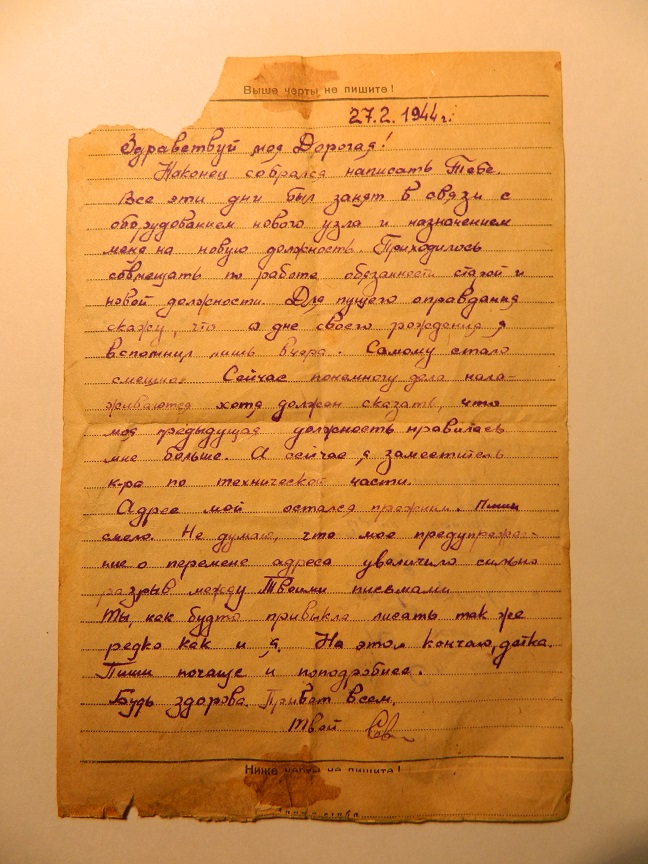 Выше черты не пишите!
27.2.1944 г.
Здравствуй моя Дорогая!
Наконец собрался написать Тебе.
Все эти дни был занят в связи с
оборудованием нового узла и назначением
меня на новую должность. Приходилось
совмещать по работе обязанности старой и
новой должности. Для пущего оправдания
скажу, что о дне своего рождения я
вспомнил лишь вчера. Самому стало
смешно. Сейчас понемногу дела нала-
живаются хотя должен сказать, что
моя предыдущая должность нравилась
мне больше. А сейчас я заместитель
к-ра по технической части.
Адрес мой остался прежним. Пиши
смело. Не думаю, что мое предупрежде-
ние о перемене адреса увеличило сильно
разрыв между Твоими письмами
Ты, как будто привыкла писать так же
редко как и я. На этом кончаю, детка.
Пиши почаще и поподробнее.
Будь здорова. Привет всем.
Твой
Ниже черты не пишите!